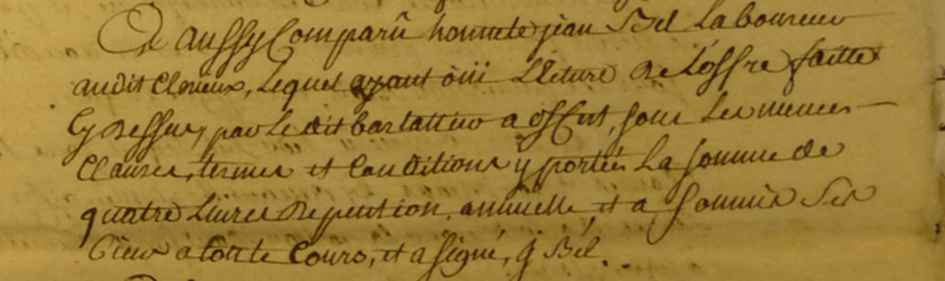 A aussy Comparû honnete jean Bel Laboureur
audit Clerieux, Lequel ayant oüi Lecture de L'offre faitte
Cy dessus, par Le dit bartattin a offert, sous Les memes
Clauses, termes et Conditions y portées La somme de
quatre Livres de pention annuelle, et a soumis Ses
biens a toute Cours, et a signé, j Bél.